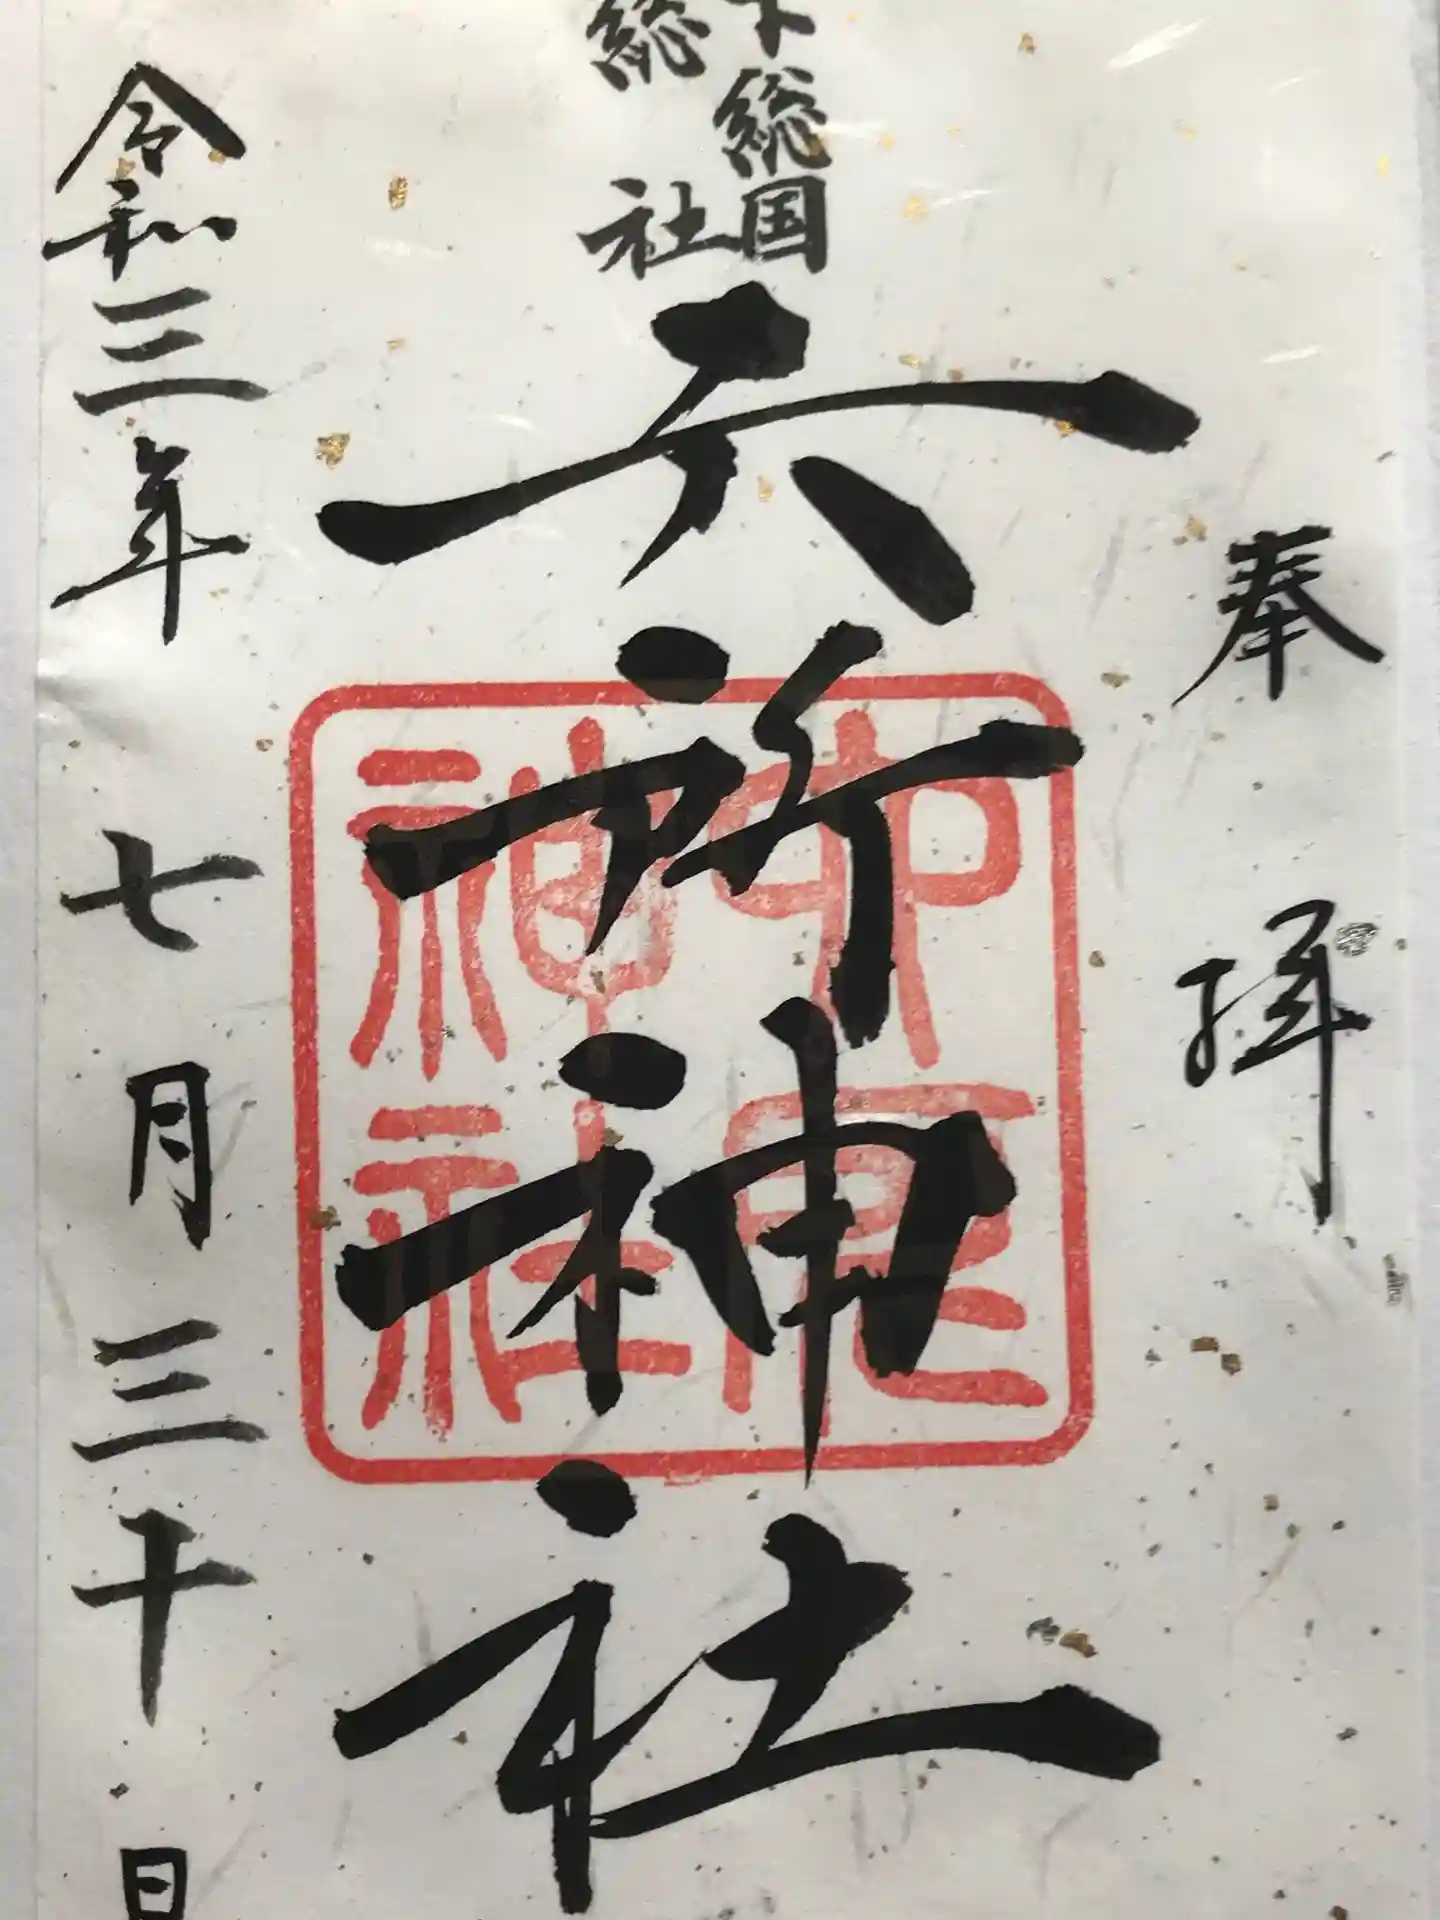 奉拝
下総国
総社
六所神社
神社
令和三年七月三十日